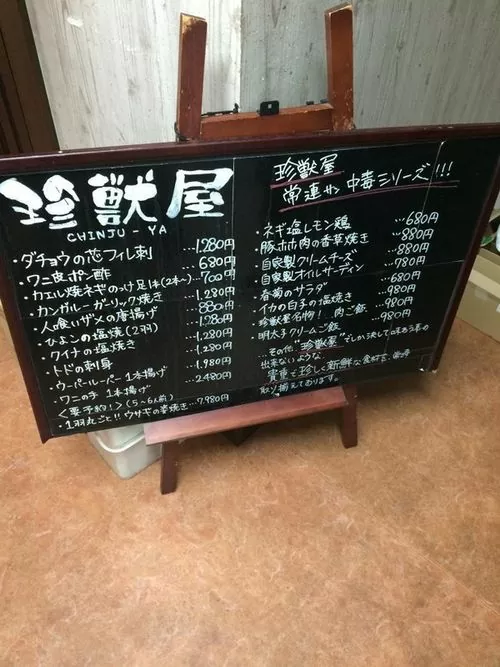 珍獣屋
CHINJU-YA
・ダチョウの芯フィレ刺 …1,280円
・ワニ皮ポン酢 …680円
・カエル焼ネギのっけ 2本〜 …700円
・カンガルーガーリック焼き …1,280円
・人喰いザメの唐揚げ …880円
・ひよこの塩焼(2羽) …1,280円
・クイナの塩焼き …1,280円
・トドの刺身 …1,280円
・ウーパールーパー1本揚げ …1,980円
・ワニの手 1本揚げ …2,480円
<要予約!>(5〜6人前)
・1羽丸ごと!!ウサギの姿焼き…7,980円
珍獣屋
常連サン中毒シリーズ!!!
・ネギ塩レモン鶏 …680円
・豚ホホ肉の香草焼き …880円
・自家製クリームチーズ …880円
・自家製オイルサーディン …780円
・春菊のサラダ …680円
・イカの白子の塩焼き …980円
・珍獣屋名物!肉ご飯 …980円
・明太子クリームご飯 …980円
…その他、"珍獣屋"でしか決して味わう事の
出来ないような、
貴重で珍しく新鮮な食材を
取り揃えております。